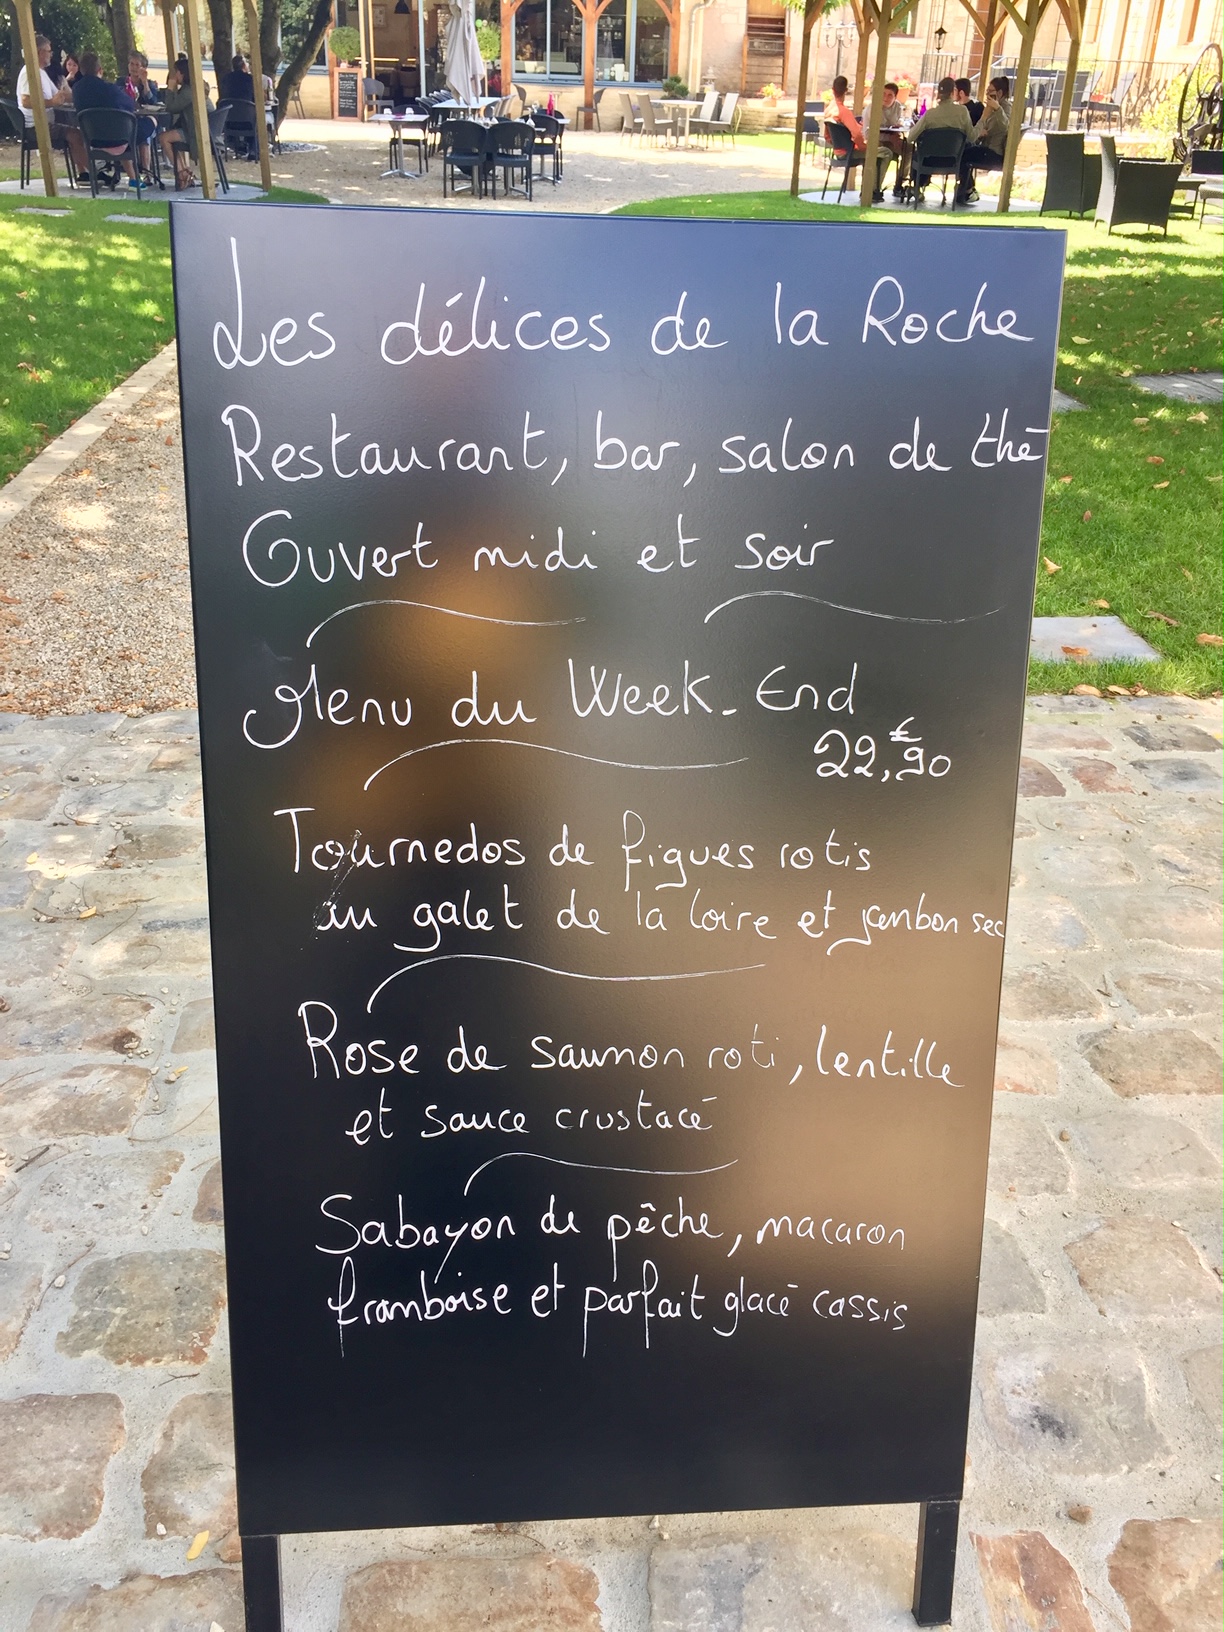 Les délices de la Roche
Restaurant, bar, salon de thé
Ouvert midi et soir
Menu du Week-End
22,90 €
Tournedos de figues rotis
au galet de la loire et jambon sec
Rose de saumon roti, lentille
et sauce crustacé
Sabayon de pêche, macaron
framboise et parfait glacé cassis